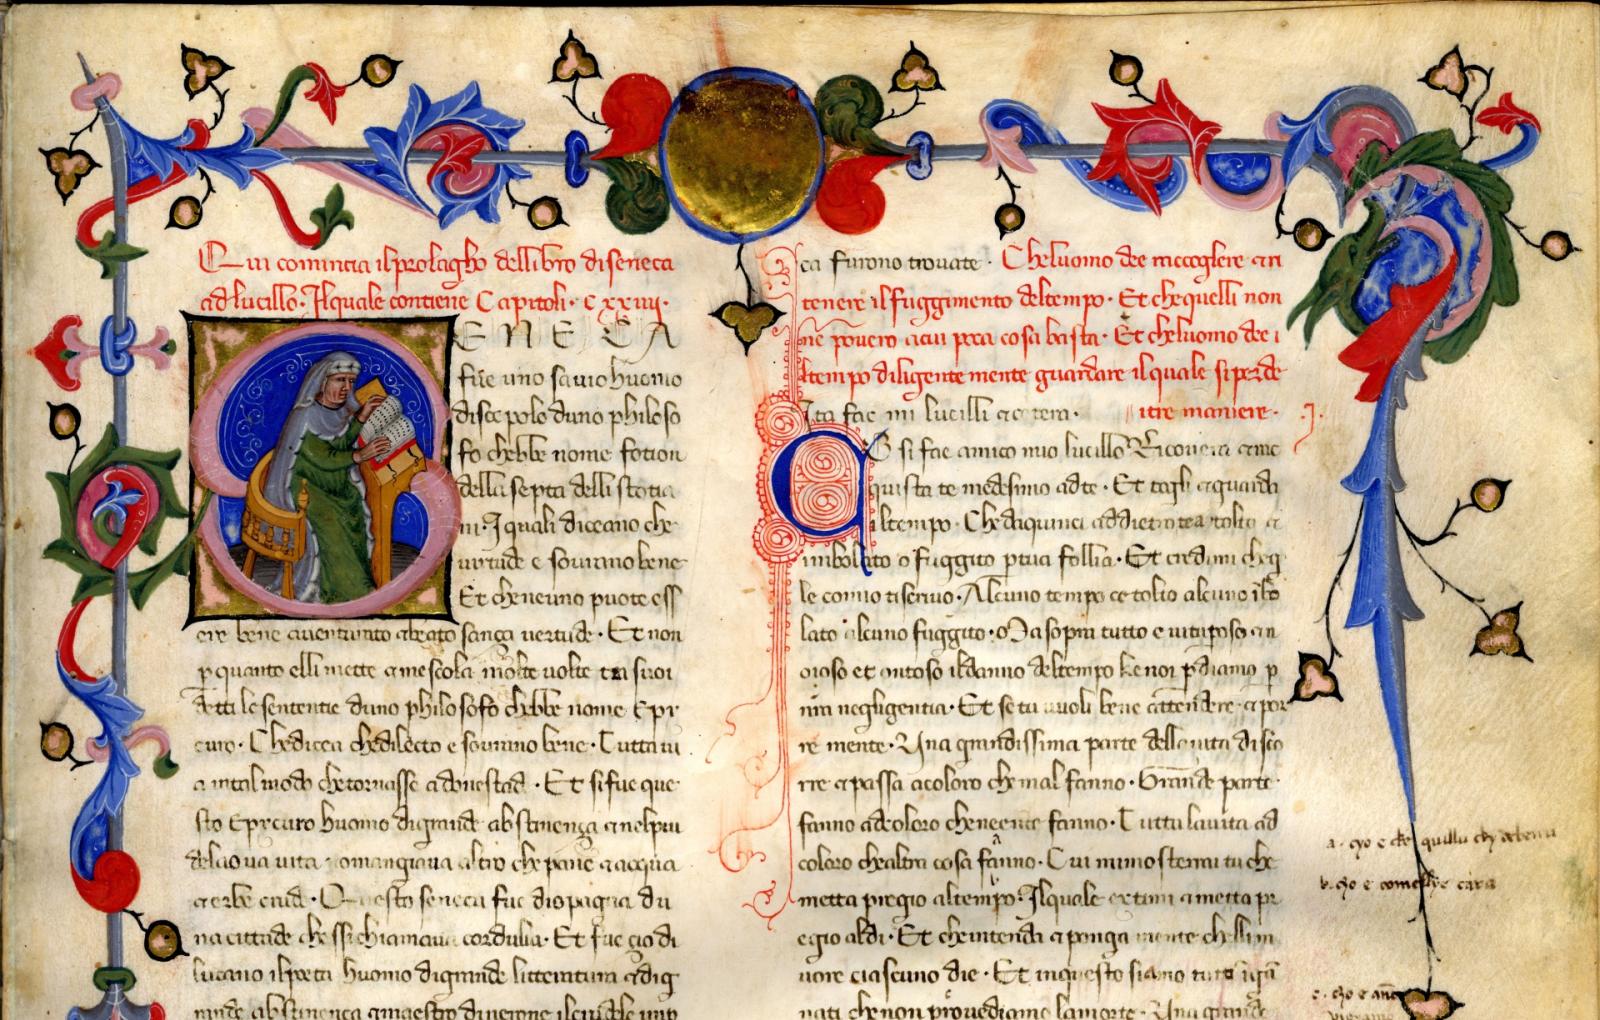 Qui comincia il prolagho dellibro diseneca
ad lucillo. Ilquale contiene Capitoli. cxxiiij.
SENECA
fue uno sauio huomo
discepolo duno philoso
fo chebbe nome fotion
della septa delli stoicia
ni. I quali diceano che
uirtude e sourano bene
Et che neuno puote ess
ere bene auenturato abeato sança uertude. Et non
p quanto elli mette amescola molte uolte tra suoi
detti le sententie duno philosofo chebbe nome Epy
curo. Che dicea chedilecto e sourano bene. Tutta ui
a intal modo che tornasse adonestad. Et si fue que
sto Epycuro huomo digrande abstinença anelpiu
delasua uita nomangiaua altro che pane aacqua
aerbe crud. Questo seneca fue dispagna du
na cittade che ssi chiamaua corduba. Et fue çio di
lucano ilpoeta huomo digrande litteratura adig
rande abstinença amaestro dinerone
ca furono trouate. Cheluomo dee raccoglere an
tenere il fuggimento deltempo. Et chequelli non
ne pouero acui poca cosa basta. Et cheluomo dee i
ltempo diligente mente guardare ilquale siperde
Ita fac mi lucilli aetera. itre maniere. .I.
COsi fae amico mio lucillo Ricouera ame
quista te medesimo adte. Et togli aguarda
iltempo. Che daquinci addietro tea tolto a
imbolato o fuggito p tua follia. Et credimi cheq
le comio tiscriuo. Alcuno tempo ce tolto alcuno ibo
lato alcuno fuggito. Ma sopra tutto e uituposo an
oioso et ontoso ildanno deltempo ke noi pdiamo p
nra negligentia. Et se tu uuoli bene attendere apor
re mente. Una grandissima parte della uita disco
rre apassa acoloro che mal fanno. Grande parte
fanno adcoloro cheneente fanno. Tutta lauita ad
coloro chealtra cosa fanno. Cui mimosterrai tu che
metta pregio altempo. Ilquale extimi ametta pr
egio aldi. Et cheintenda aponga mente chellim
uore ciascuno die. Et inquesto siamo tutti iga
nati che non prouediamo lamorte. Una grande
a. çyo e che quillu chy
b. çyo e come
c. çyo e